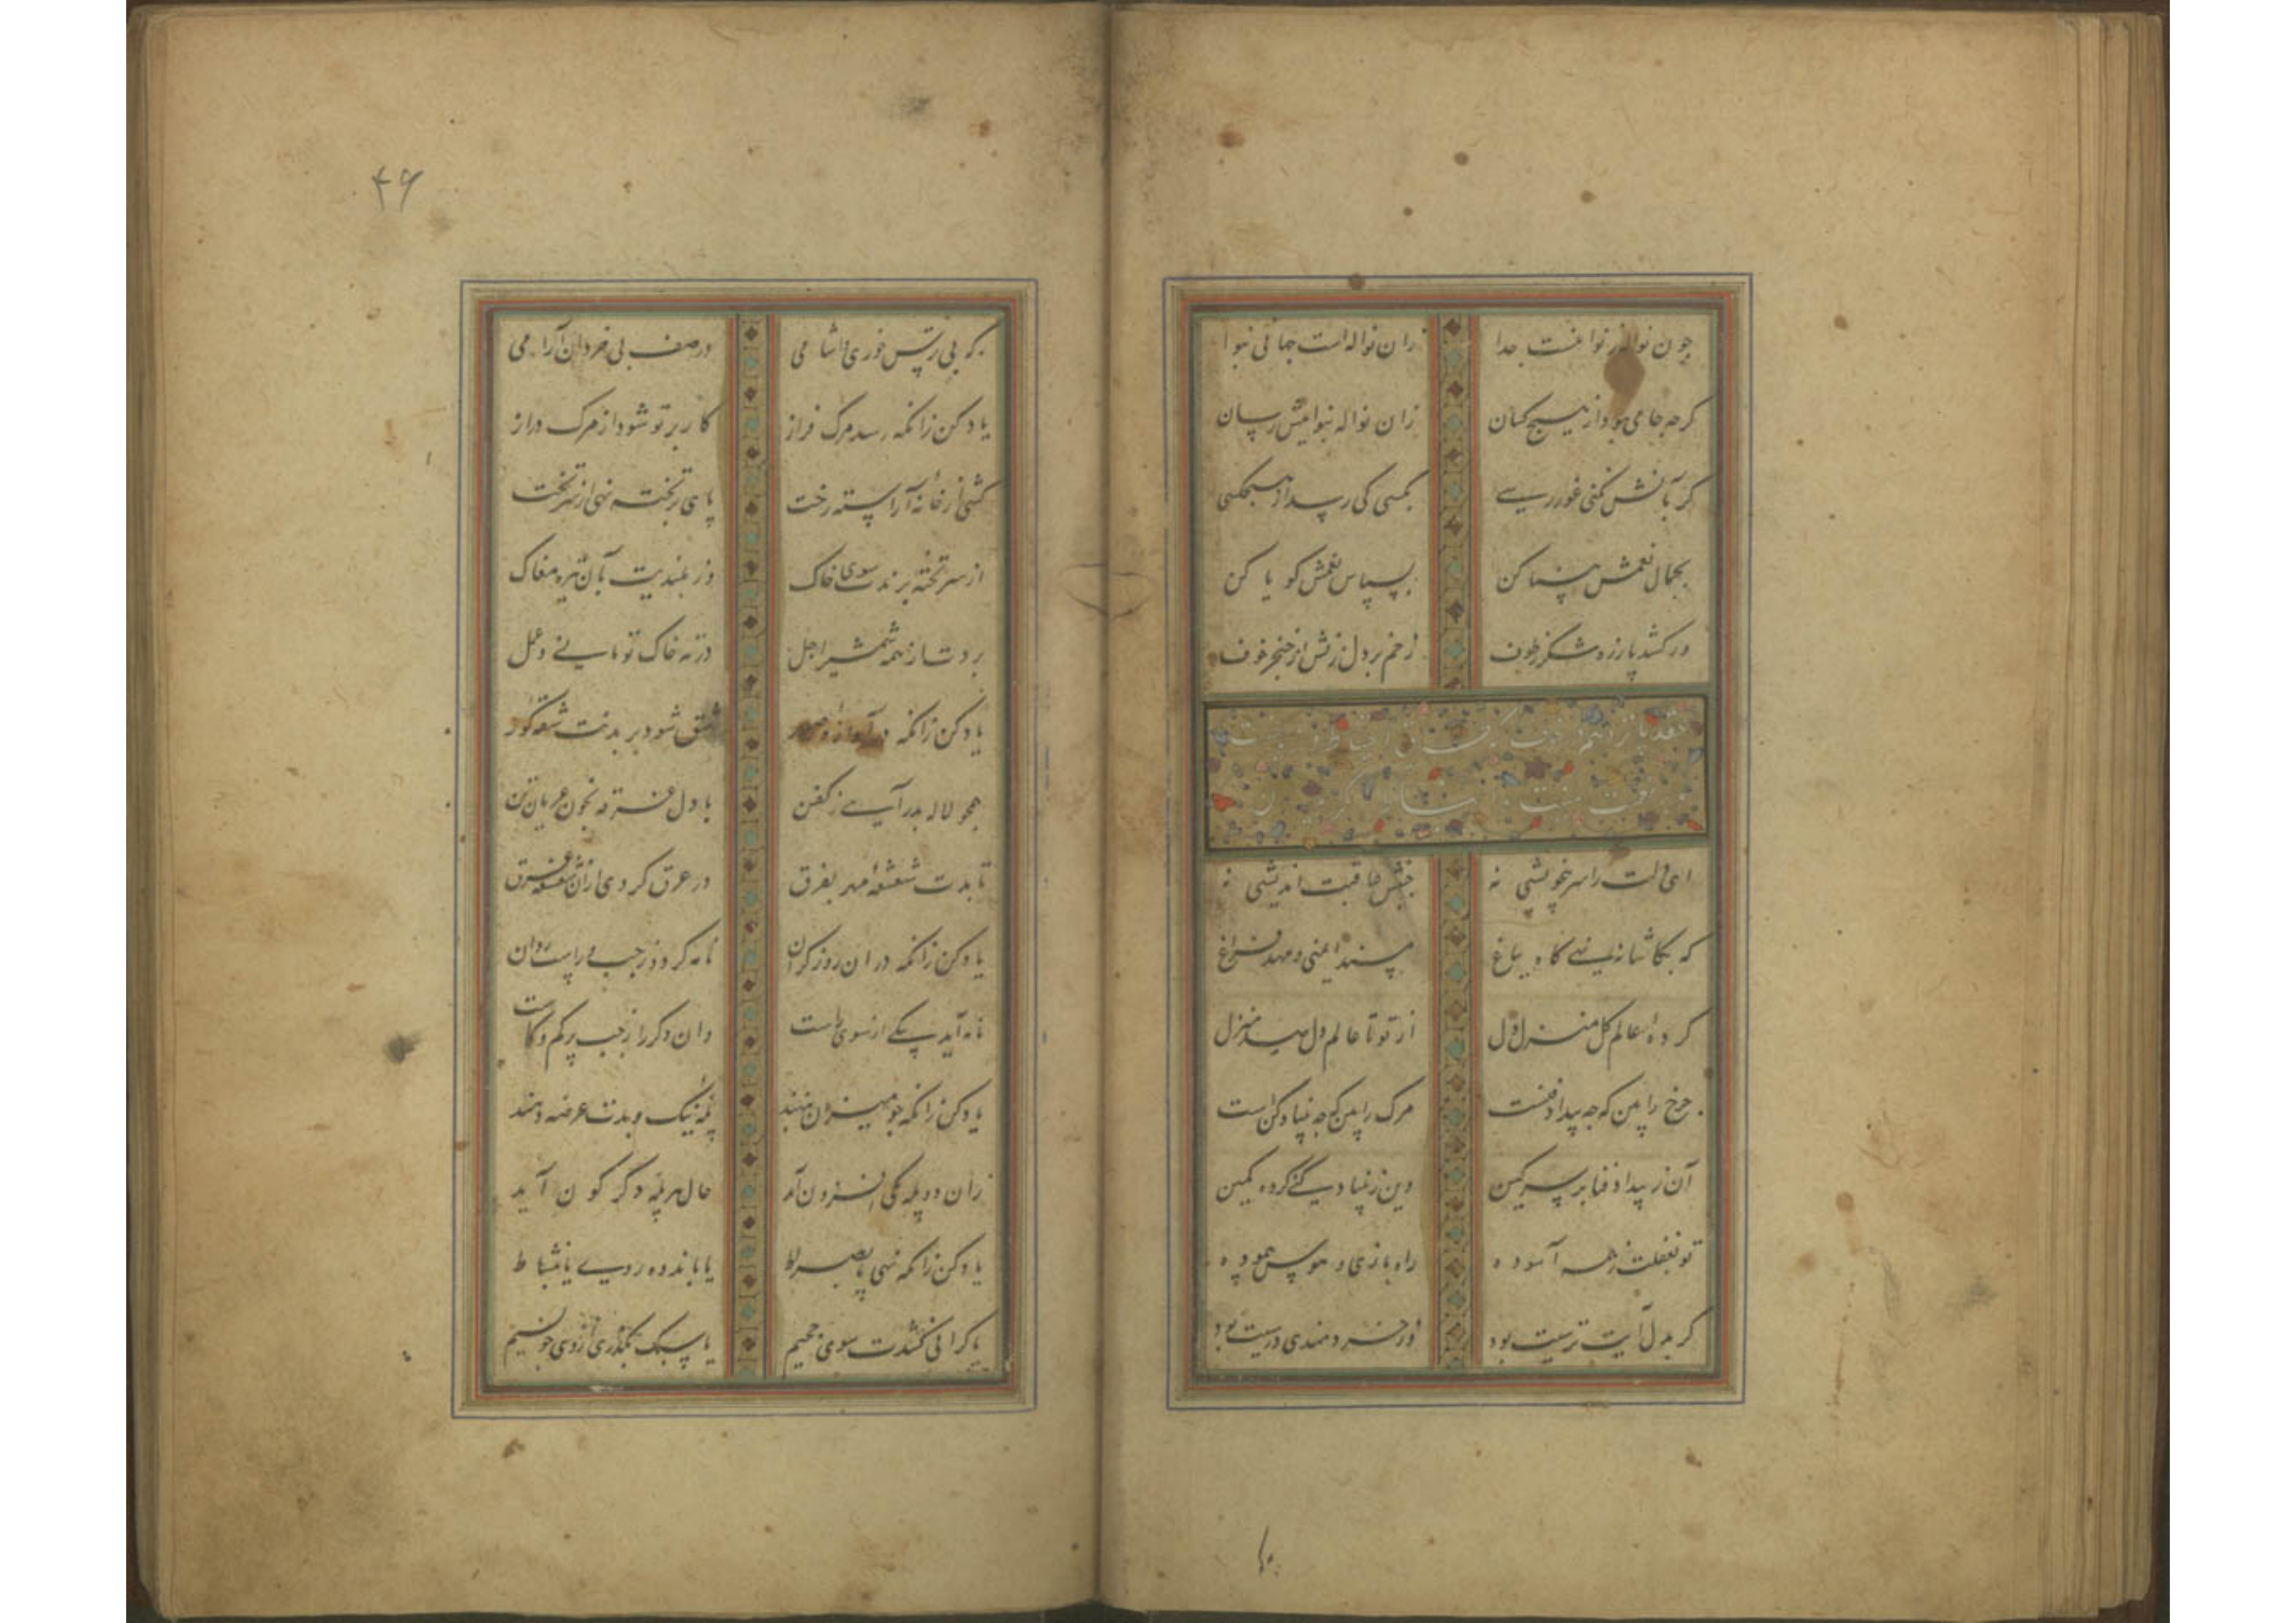 چون نوالهٔ ز نواغت جدا زان نواله است جهانی بنوا
کرچه جامی بود از هیچ کسان زان نواله بنوائیش رسان
کر باتش نکنی غوررسی بکسی کی رسد از هیچکسی
بجمال نعمش بینا کن بسپاس نعمش کویا کن
ور کشد پا ز ره شکر زخوف زخم بر دل زنش از خنجر خوف
عقد پانزدهم در خوف
ای دلت را سر خویشی نه جنبش عاقبت اندیشی نه
که بکاشانه نهی کاه بباغ مسند ایمنی و مهد فراغ
کرده عالم کل منزل دل از تو تا عالم دل صد منزل
چرخ را بین که چه بیداد فنست مرک را بین که چه بنیاد کن است
آن ز بیداد فنا بر سر کین وین ز بنیاد کنی کرده کمین
تو بغفلت ز همه آسوده راه بازی و هوس پیموده
کر بدل آیت ترسیت بود وز خردمندی درسیت بود
۴۶
که بی رتس خوری و اشامی در صف بی خردان آرامی
یاد کن زانکه رسد مرک فراز کار بر تو شود از مرک دراز
کشی از خانهٔ آراسته رخت پای بر تخته نهی از سر تخت
از سر تخته برندت سوی خاک وز بلندیت بآن تیره مغاک
بردت از همه شمشیر اجل در ته خاک تو مانی و عمل
یاد کن زانکه در آوازهٔ صور شق شود بر بدنت شقهٔ کور
همچو لاله بدر آیی ز کفن با دل غرقه بخون عریان تن
تابدت شعشعهٔ مهر بفرق در عرق کردی ازان شعشعه غرق
یاد کن زانکه در ان روز کران نامه کردد ز چپ و راست روان
نامه آید یکی از سوی راست وان دکر را ز چپ پر کم و کاست
یاد کن زانکه چو میزان بنهند پلهٔ نیک و بدت عرضه دهند
زان دو پله یکی افزون آید حال هر پله دکرکون آید
یاد کن زانکه نهی پا بصراط یا باندوه روی یا بنشاط
یا کرانی کشدت سوی جحیم یا سبک بکذری از وی چو نسیم